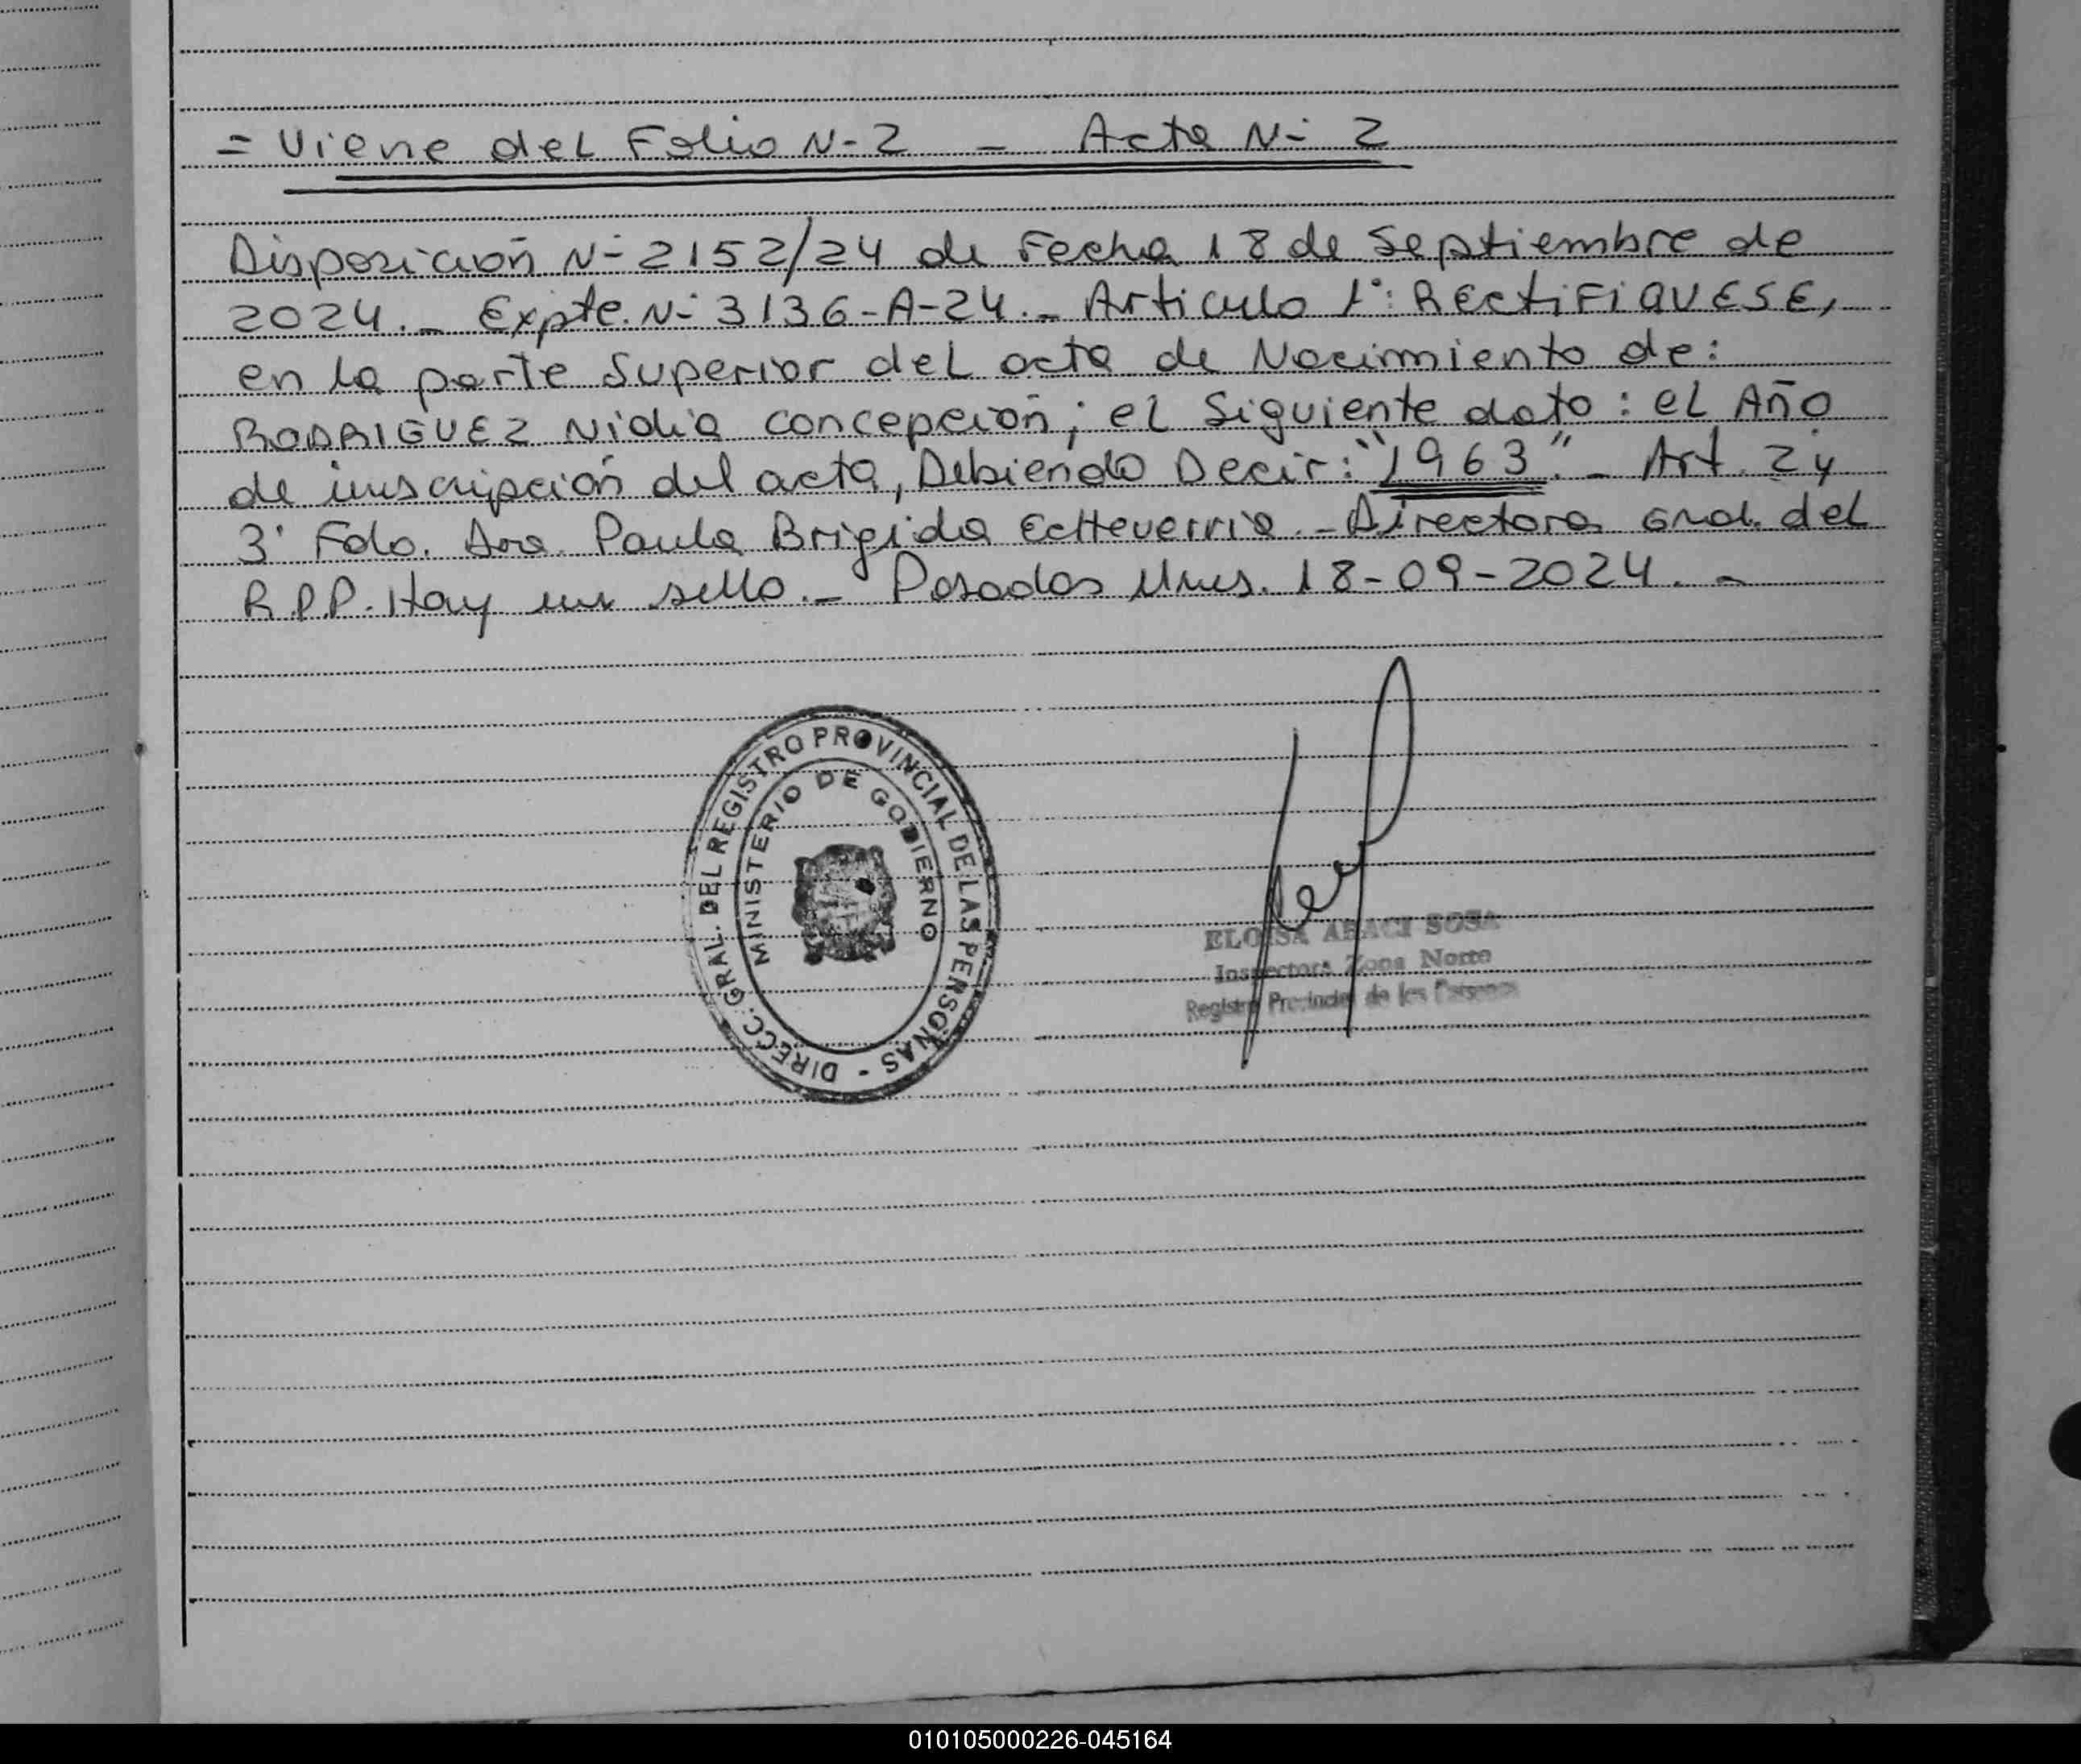 = Viene del Folio N- 2 - Acta N- 2
Disposición N- 2152/24 de Fecha 18 de Septiembre de
2024.- Expte. N- 3136-A-24.- Articulo 1°: RECTIFIQUESE,
en la parte Superior del acta de Nacimiento de:
RODRIGUEZ Nidia Concepción; el Siguiente dato: el Año
de inscripción del acta, Debiendo Decir: "1963".- Art. 2 y
3° Fdo. Dra. Paula Brigida Echeverria.- Directora Gral. del
R.P.P. Hay un sello.- Posadas Mnes. 18-09-2024.-
DIRECC. GRAL. DEL REGISTRO PROVINCIAL DE LAS PERSONAS -
MINISTERIO DE GOBIERNO
ELOISA ARACI SOSA
Inspectora Zona Norte
Registro Provincial de las Personas
010105000226-045164